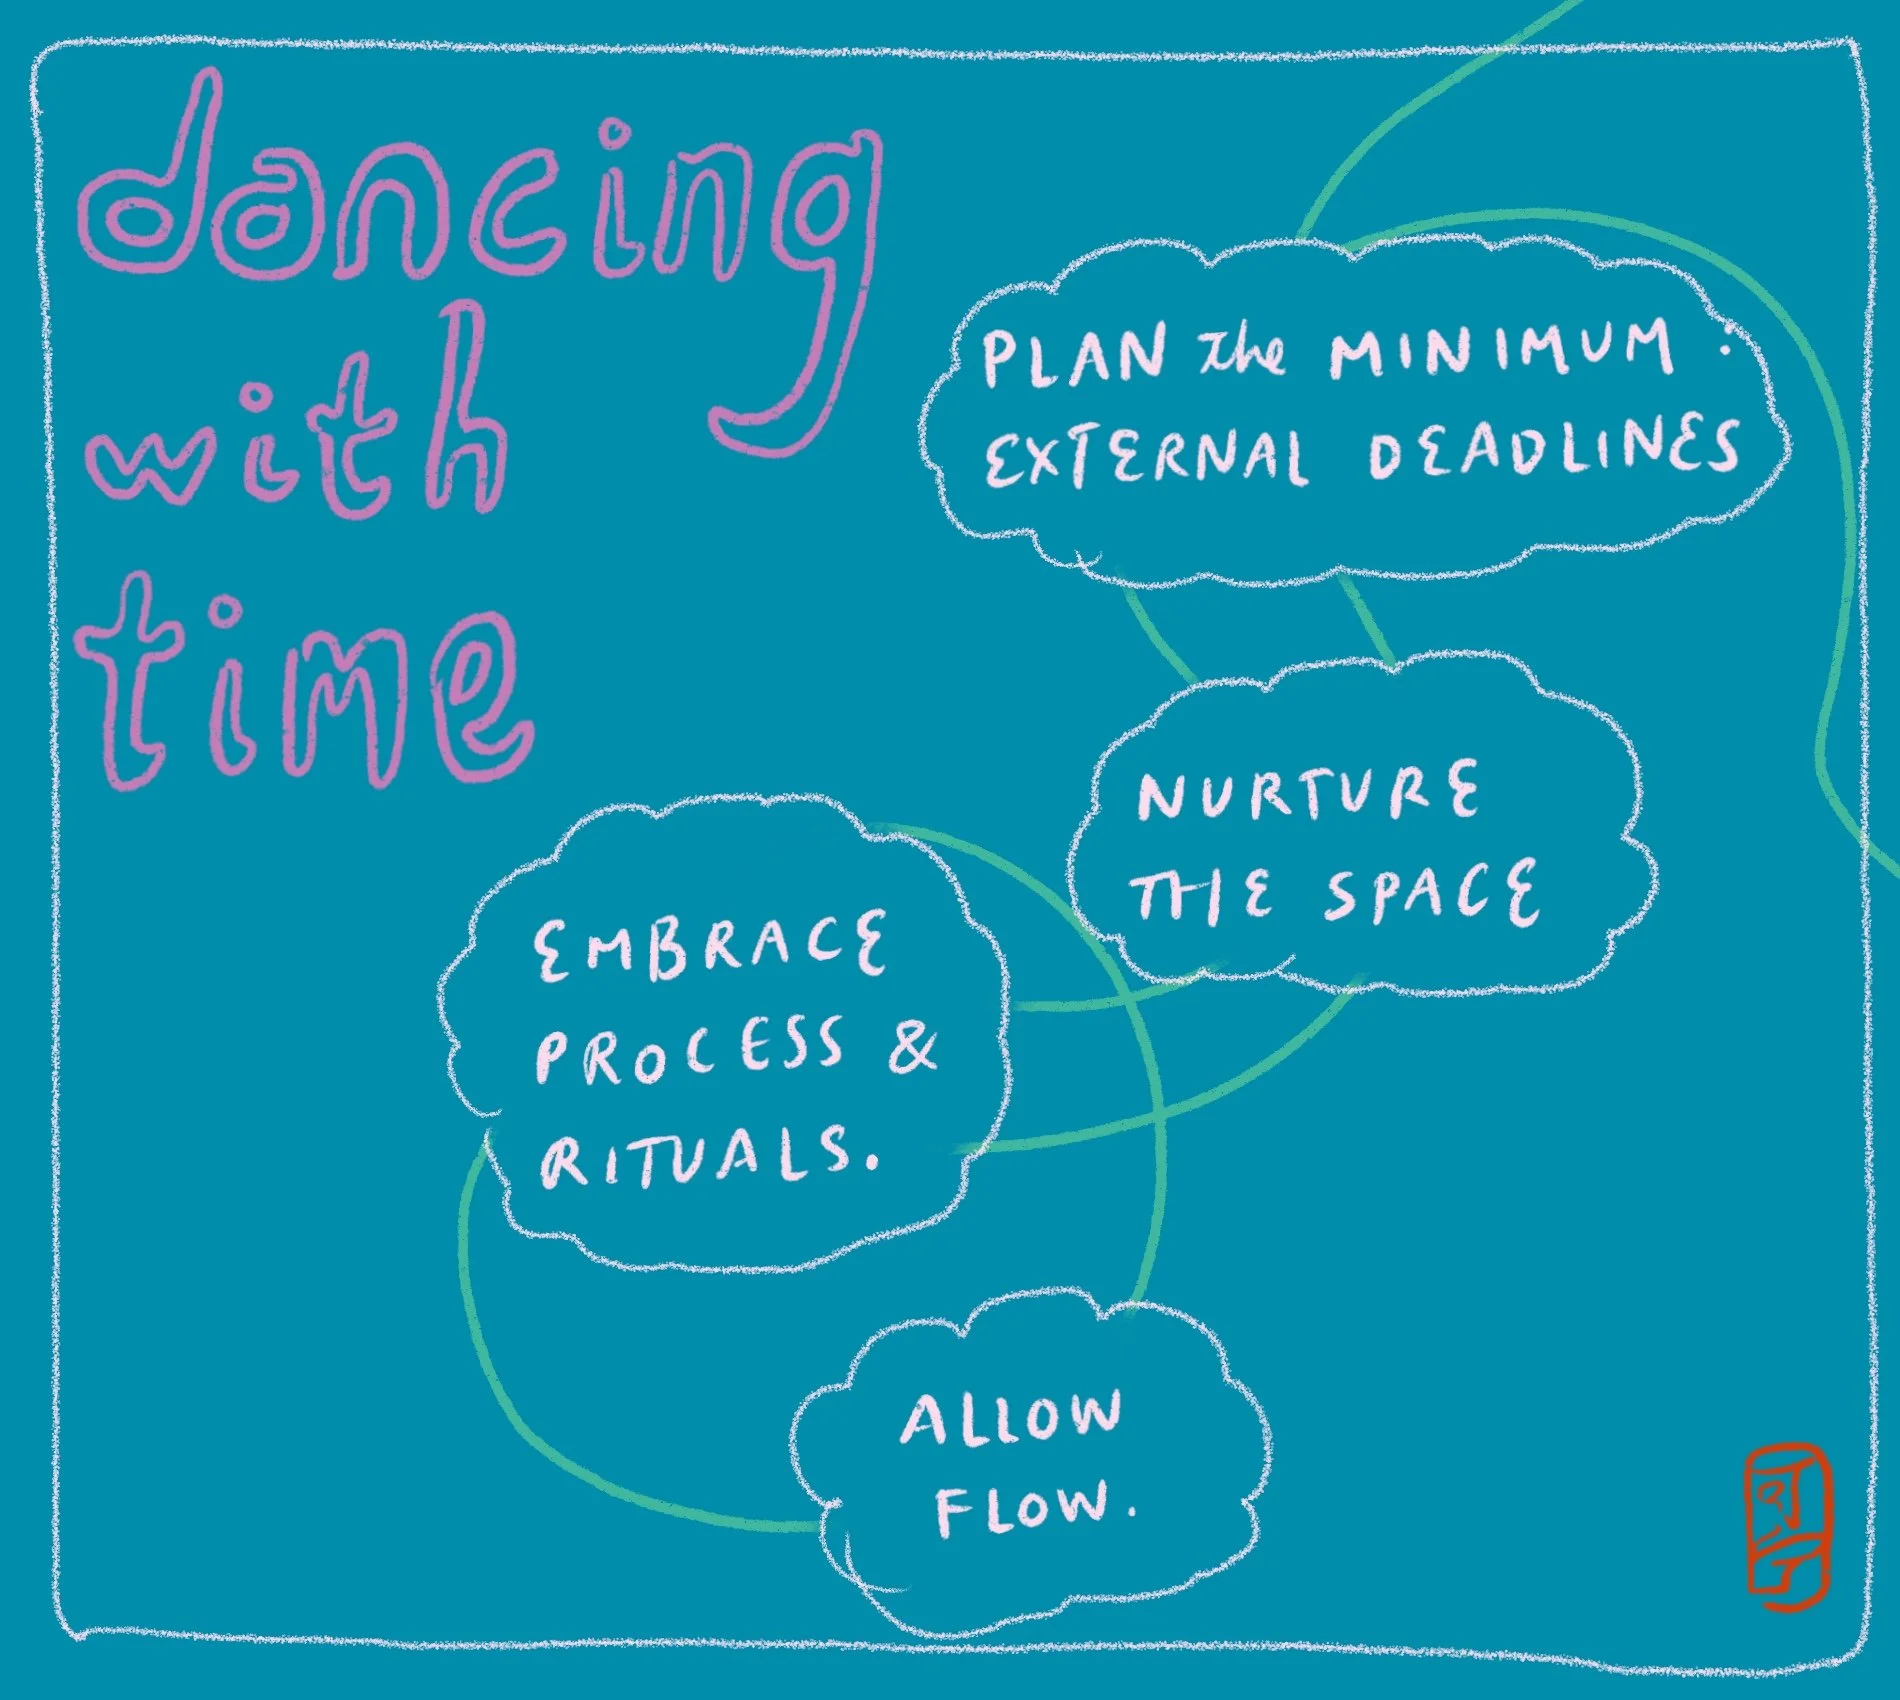 dancing
with
time
PLAN the MINIMUM :
EXTERNAL DEADLINES
NURTURE
THE SPACE
EMBRACE
PROCESS &
RITUALS.
ALLOW
FLOW.